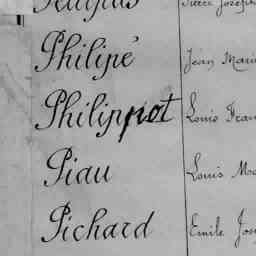 Philipé Jean Mari
Philippot Louis Fran
Piau Louis Mo
Pichard Emile Jos